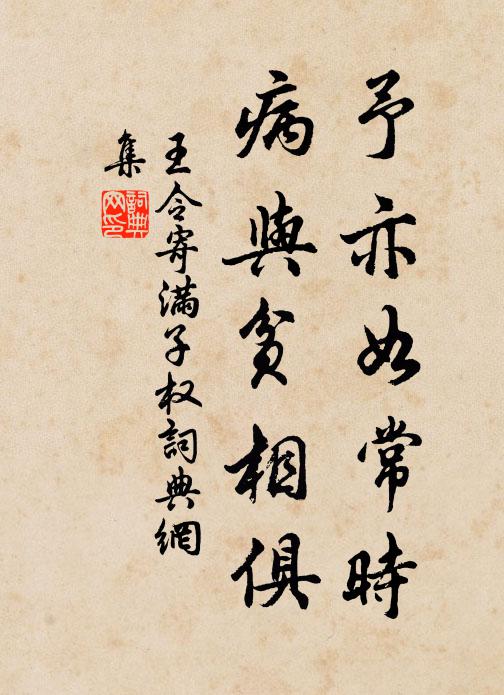 予亦如常時
病與貧相俱
王令寄滿子权詞典網
集
詞典
网印